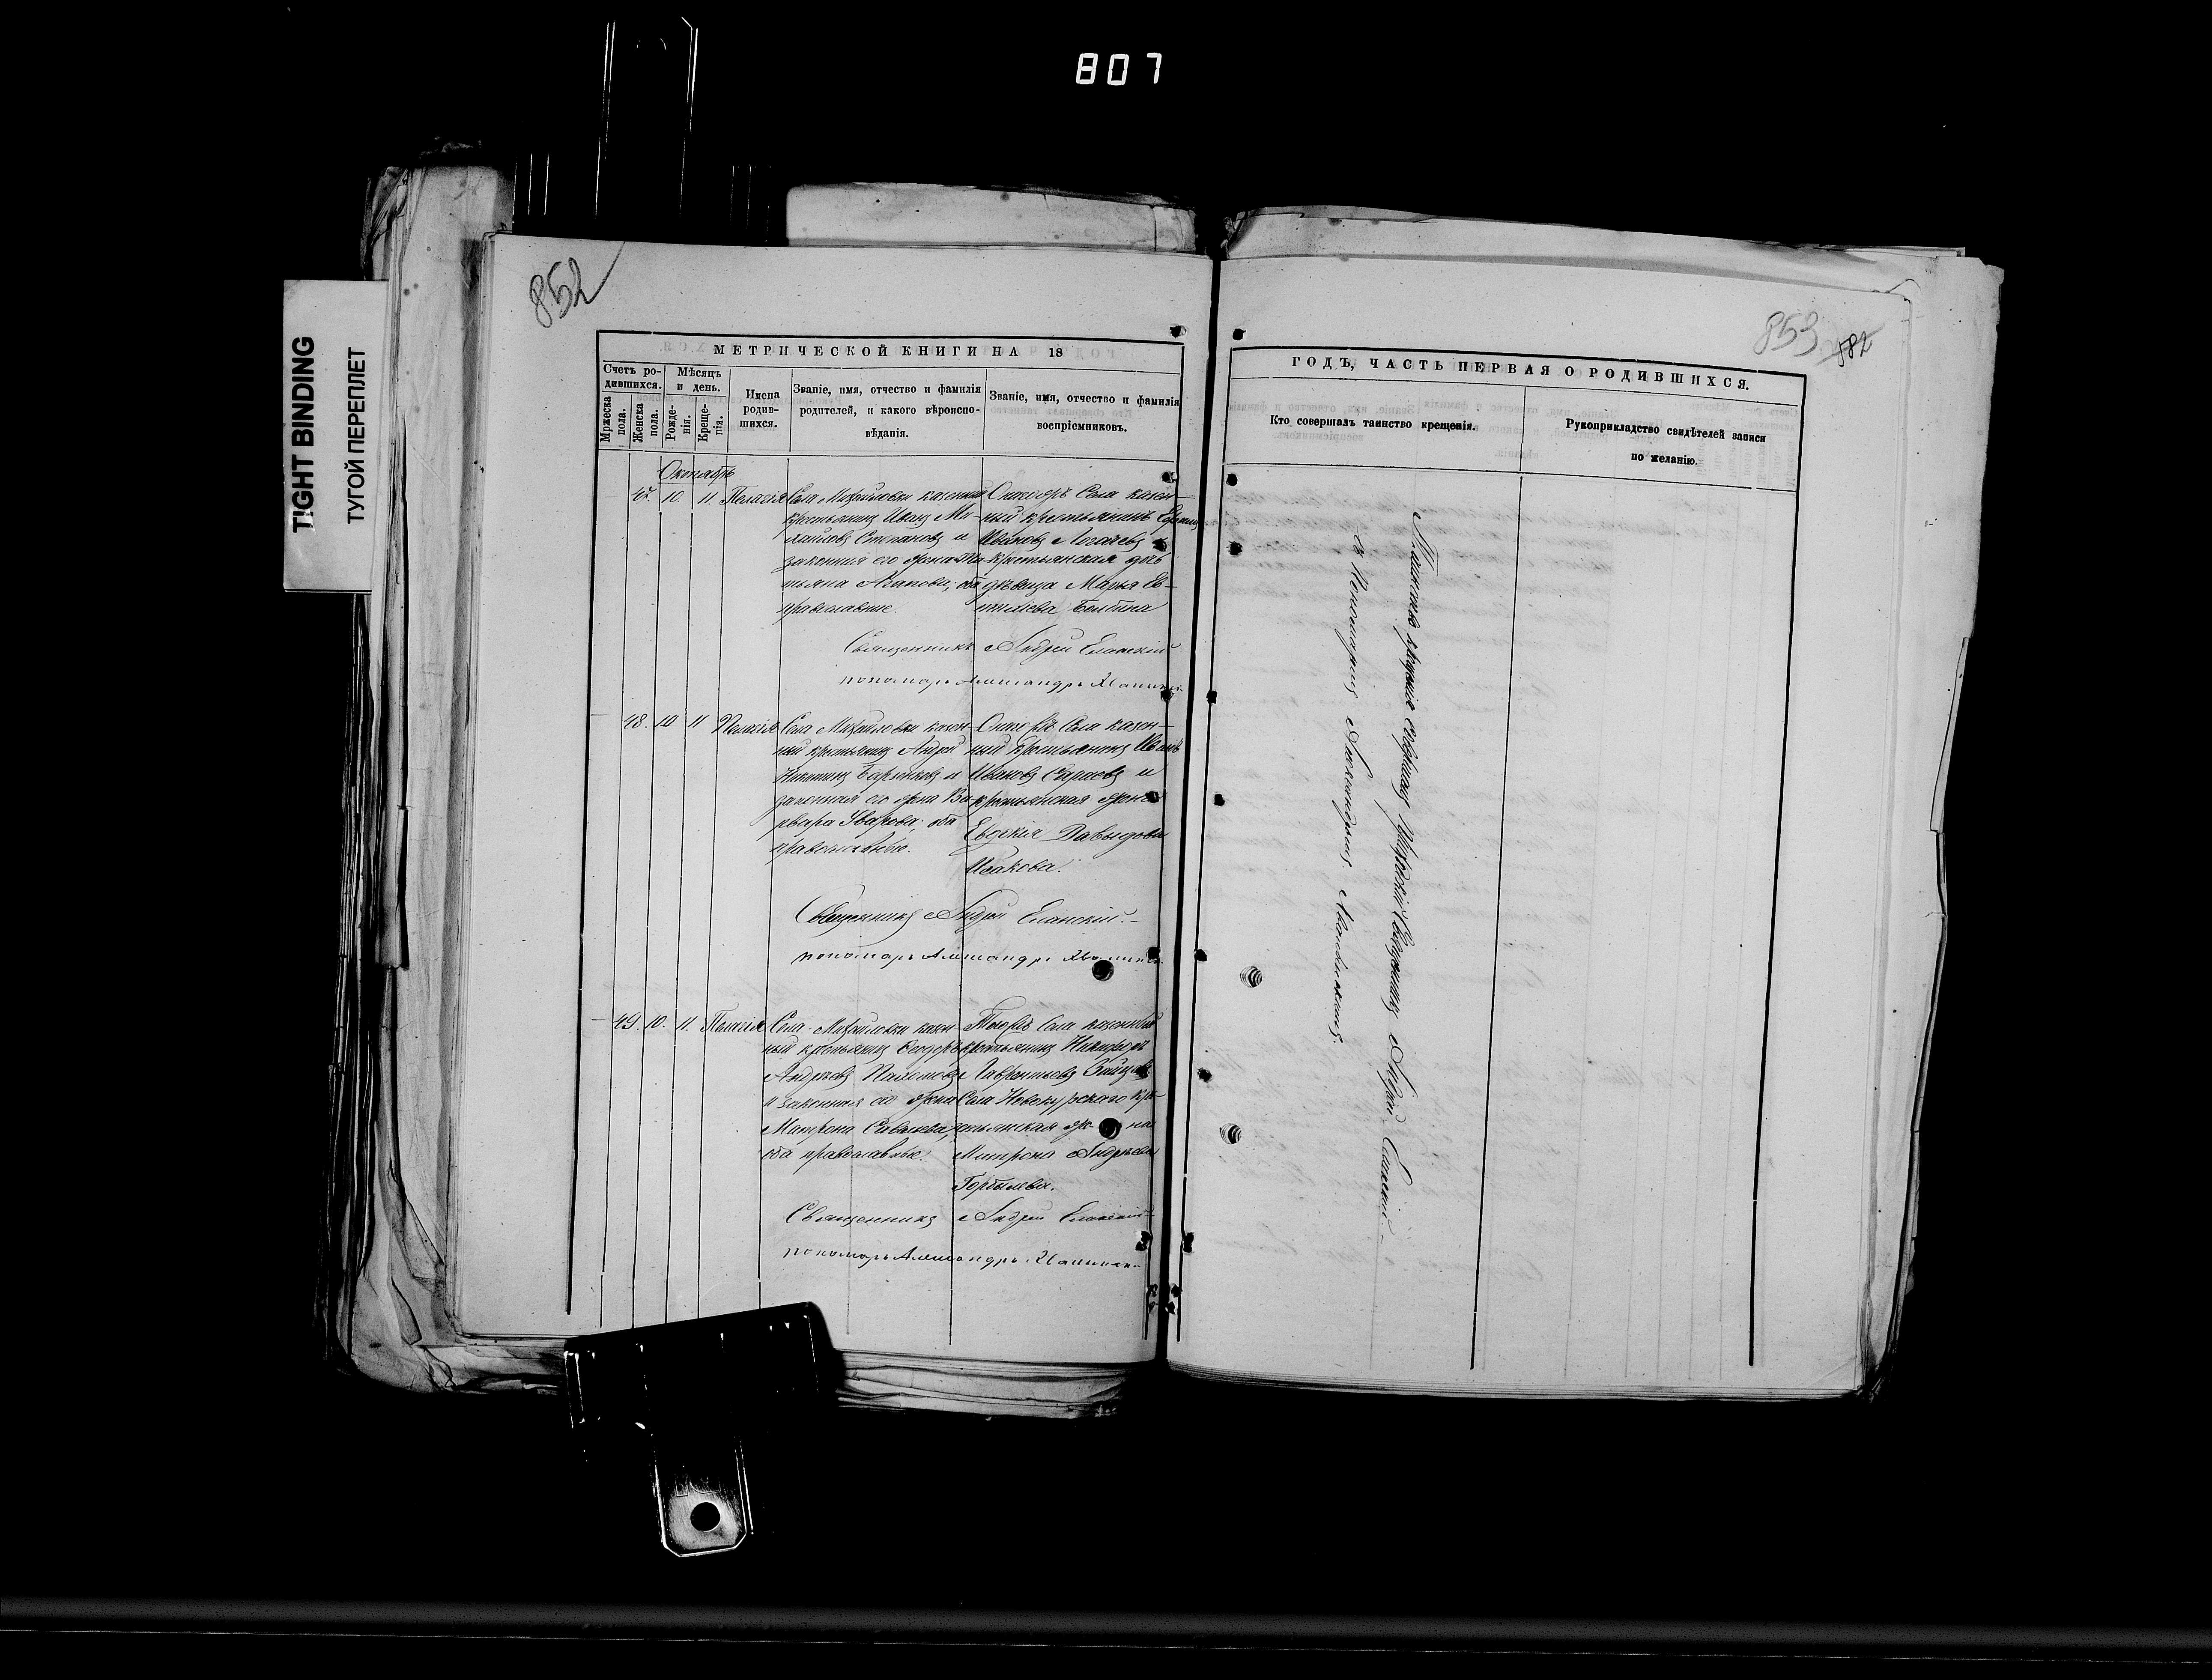 807
TIGHT BINDING
ТУГОЙ ПЕРЕПЛЕТ
852
МЕТРИЧЕСКОЙ КНИГИ НА 18
Счетъ родившихся.
Мужеска пола.
Женска пола.
Мѣсяцъ и день.
Рожденія.
Крещенія.
Имена родившихся.
Званіе, имя, отчество и фамилія родителей, и какого вѣроисповѣданія.
Званіе, имя, отчество и фамилія воспріемниковъ.
Октябрь
47. 10. 11. Пелагія
Села Михайловки казенный
крестьянинъ Иванъ Ми-
хайловъ Степановъ и
законная его жена Та-
тьяна Агапова; оба
православные.
Села казен-
ный крестьянинъ
Ивановъ Логачевъ и
крестьянская дочь
дѣвица Марья Ев-
Священникъ Андрей Еланскій
пономарь Александръ
48. 10 11 Пелагія
Села Михайловки казен-
ный крестьянинъ Андрей
Никитинъ и
законная его жена Ва-
рвара Уварова; оба
православные.
Села казен-
ный крестьянинъ Иванъ
Ивановъ и
крестьянская жена
Евдокія Давыдова
Исакова.
Священникъ Андрей Еланскій.
пономарь Александръ
49. 10. 11. Пелагія
Села Михайловки казен-
ный крестьянинъ Ѳеодоръ
Андреевъ
и законная его жена
Матрона Савельева,
оба православные.
Села казенный
крестьянинъ Никифоръ
Лаврентьевъ Зайцевъ
Села Новокурскаго кре-
стьянская жена
Матрона Андреева
Горбылева.
Священникъ Андрей Еланскій
пономарь Александръ
853
582
ГОДЪ, ЧАСТЬ ПЕРВАЯ О РОДИВШИХСЯ.
Кто совершалъ таинство крещенія.
Рукоприкладство свидѣтелей записи по желанію.
Таинство крещенія совершалъ Священникъ Андрей Еланскій
съ Пономаремъ Александромъ